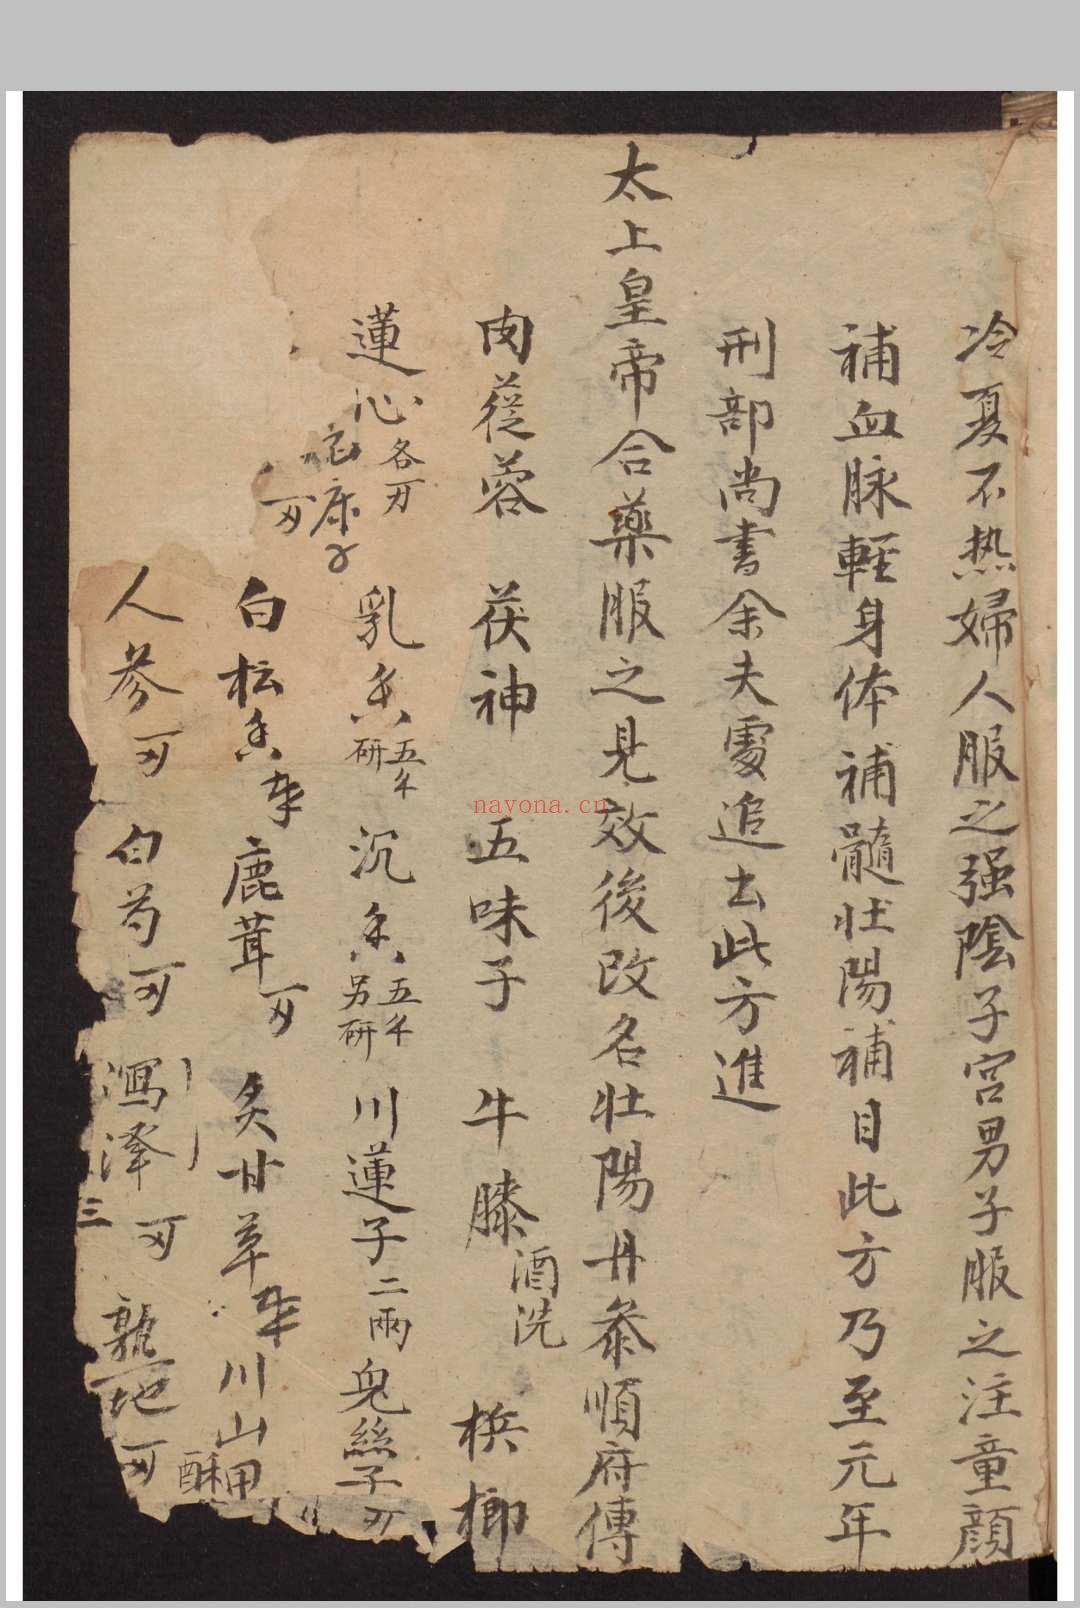 冷夏不热婦人服之强陰子宫男子服之注童顔
補血脉輕身体補髓壮陽補目此方乃至元年
刑部尚書余夫處追去此方進
太上皇帝合藥服之見效後改名壮陽丹泰順府傳
肉蓯蓉 茯神 五味子 牛膝酒洗 梹榔
蓮心各刃 乳香五分研 沉香五分另研 川蓮子二兩 兔絲子
白松香 鹿茸 炙甘草 川山甲酥
人參 白芍 澤瀉 三 熟地
nayona.cn